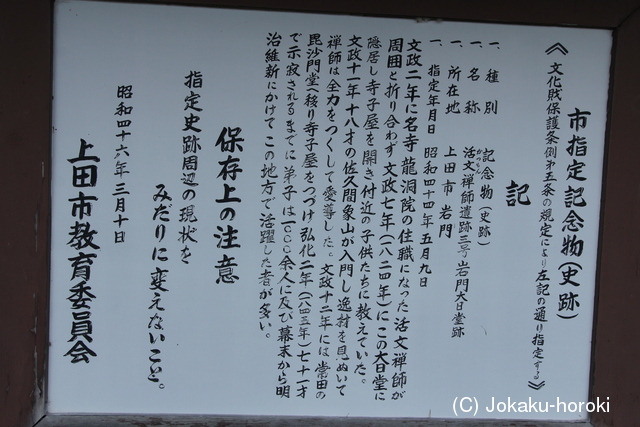 市指定記念物(史跡)
《文化財保護条例第五条の規定により左記の通り指定する》
記
一、種別 記念物(史跡)
一、名称 活文禅師遺跡三号岩門大日堂跡
かつもん
一、所在地 上田市岩門
一、指定年月日 昭和四十四年五月九日
文政二年に名寺龍洞院の住職になった活文禅師が
周囲と折り合わず文政七年(一八二四年)にこの大日堂に
隠居し寺子屋を開き付近の子供たちに教えていた。
文政十一年十八才の佐久間象山が入門し逸材を見ぬいて
禅師は全力をつくして愛導した。文政十二年には常田の
毘沙門堂に移り寺子屋をつづけ弘化二年(一八四五年)七十一才
で示寂されるまでに弟子は一〇〇〇余人に及び幕末から明
治維新にかけてこの地方で活躍した者が多い。
保存上の注意
指定史跡周辺の現状を
みだりに変えないこと。
昭和四十六年三月十日
上田市教育委員会
(C) Jokaku-horoki